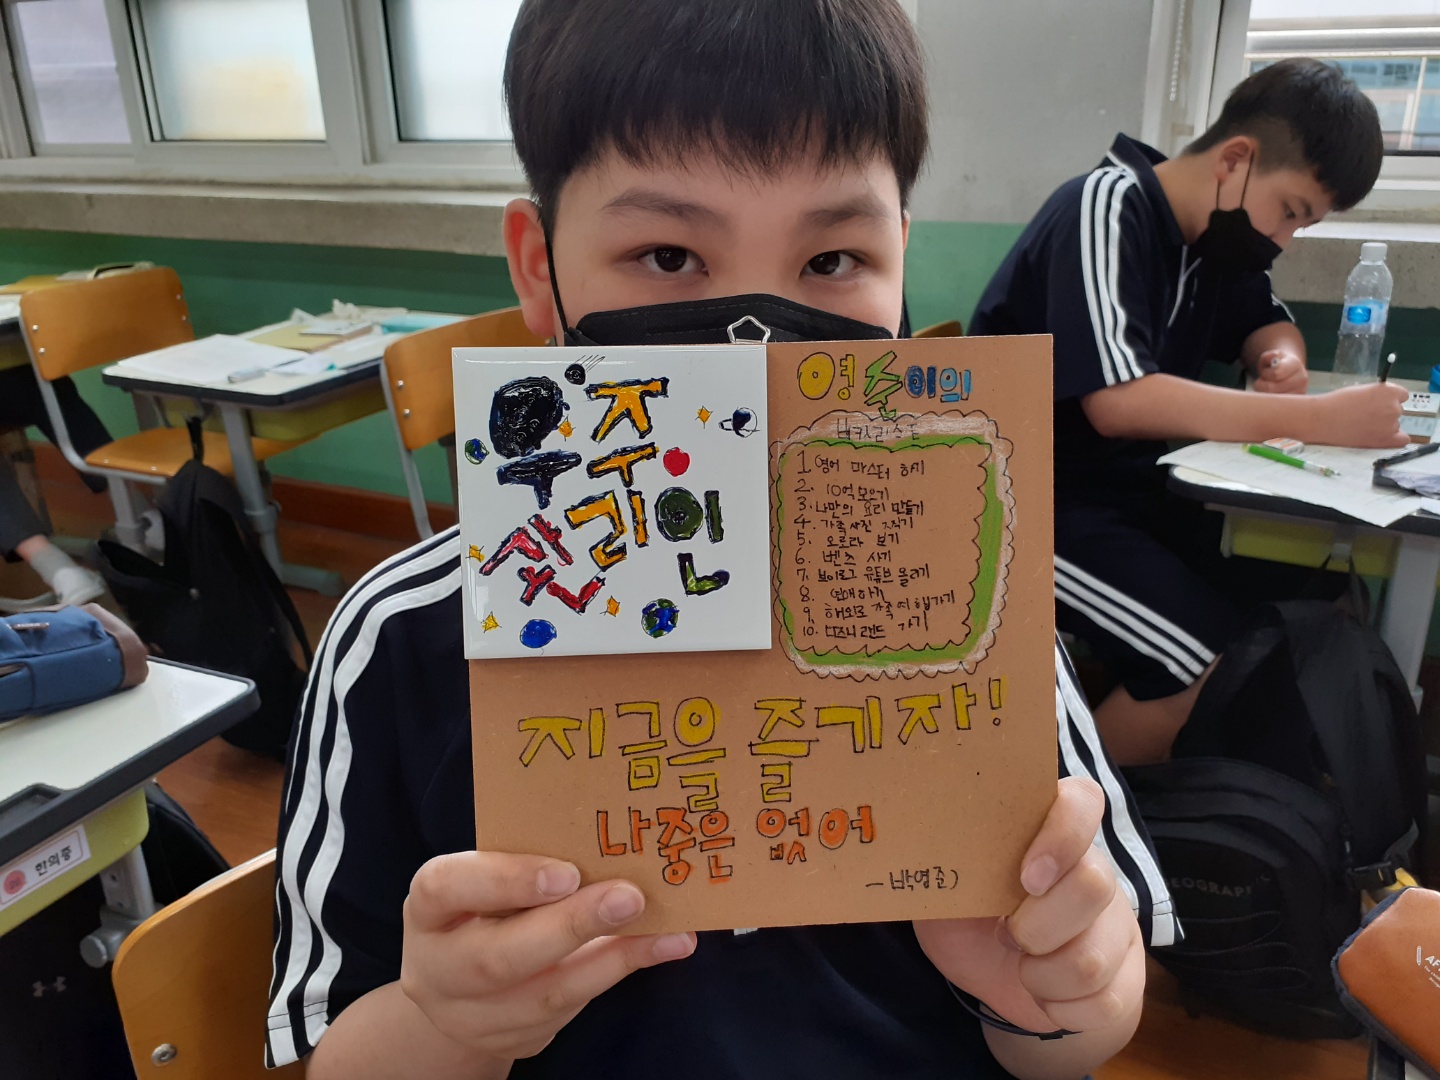 우주
최리인
영준이의
버킷리스트
1. 영어 마스터 하기
2. 10억 모으기
3. 나만의 요리 만들기
4. 가족사진 찍기
5. 오로라 보기
6. 벤츠 사기
7. 브이로그 유튜브 올리기
8. 연애하기
9. 해외로 가족여행가기
10. 디즈니랜드 가기
지금을 즐기자!
나중은 없어
-박영준)
한의중